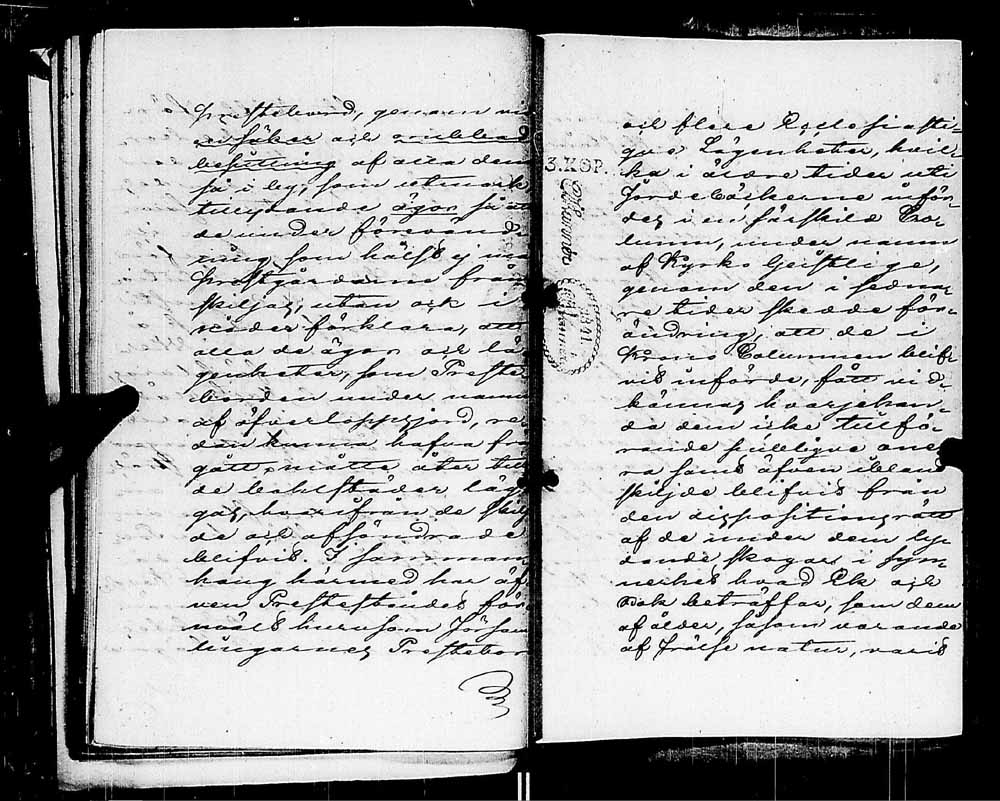 Prestebord, genom
ansöker och rubbad
besittning af alla dem
så i by, som utmark
tillydande ägor, så at
de under förevänd
ning som hälst ej må
Prestgårdarne från
skiljas, utan ock i
nåder förklara, att
alla de ägor och lä
genheter, som Preste
borden under namn
af öfverloppsjord, re
dan kunna hafva från
gått, måtte åter til
de bohlstäder läg
gas, hvarifrån de skil
de och afsöndrade
blifvit. I samman
hang härmed har äf
ven Prestståndet före
mält huru som Församlingarnes Prestebor
och flere Ecclesiasti-
que Lägenheter, hvil-
ka i äldre tider uti
Jordeböckerne inför-
des i en särskild Co-
lumn, under namn
af Kyrko Geistlige,
genom den i sedna-
re tider skedde för-
ändring, att de i
Krono Columnen blif-
vit införde, fått vid-
kännas hvarjehan-
da dem icke tillhö-
rande pålägg
ra samt äfven ibland
skiljde blifvit från
den dispositionsrätt
af de under dem ly-
dande skogar i syn-
nerhet hvad Ek och
Bok beträffar, som dem
af ålder, såsom varande
af frälse natur, varit
3.KOP.